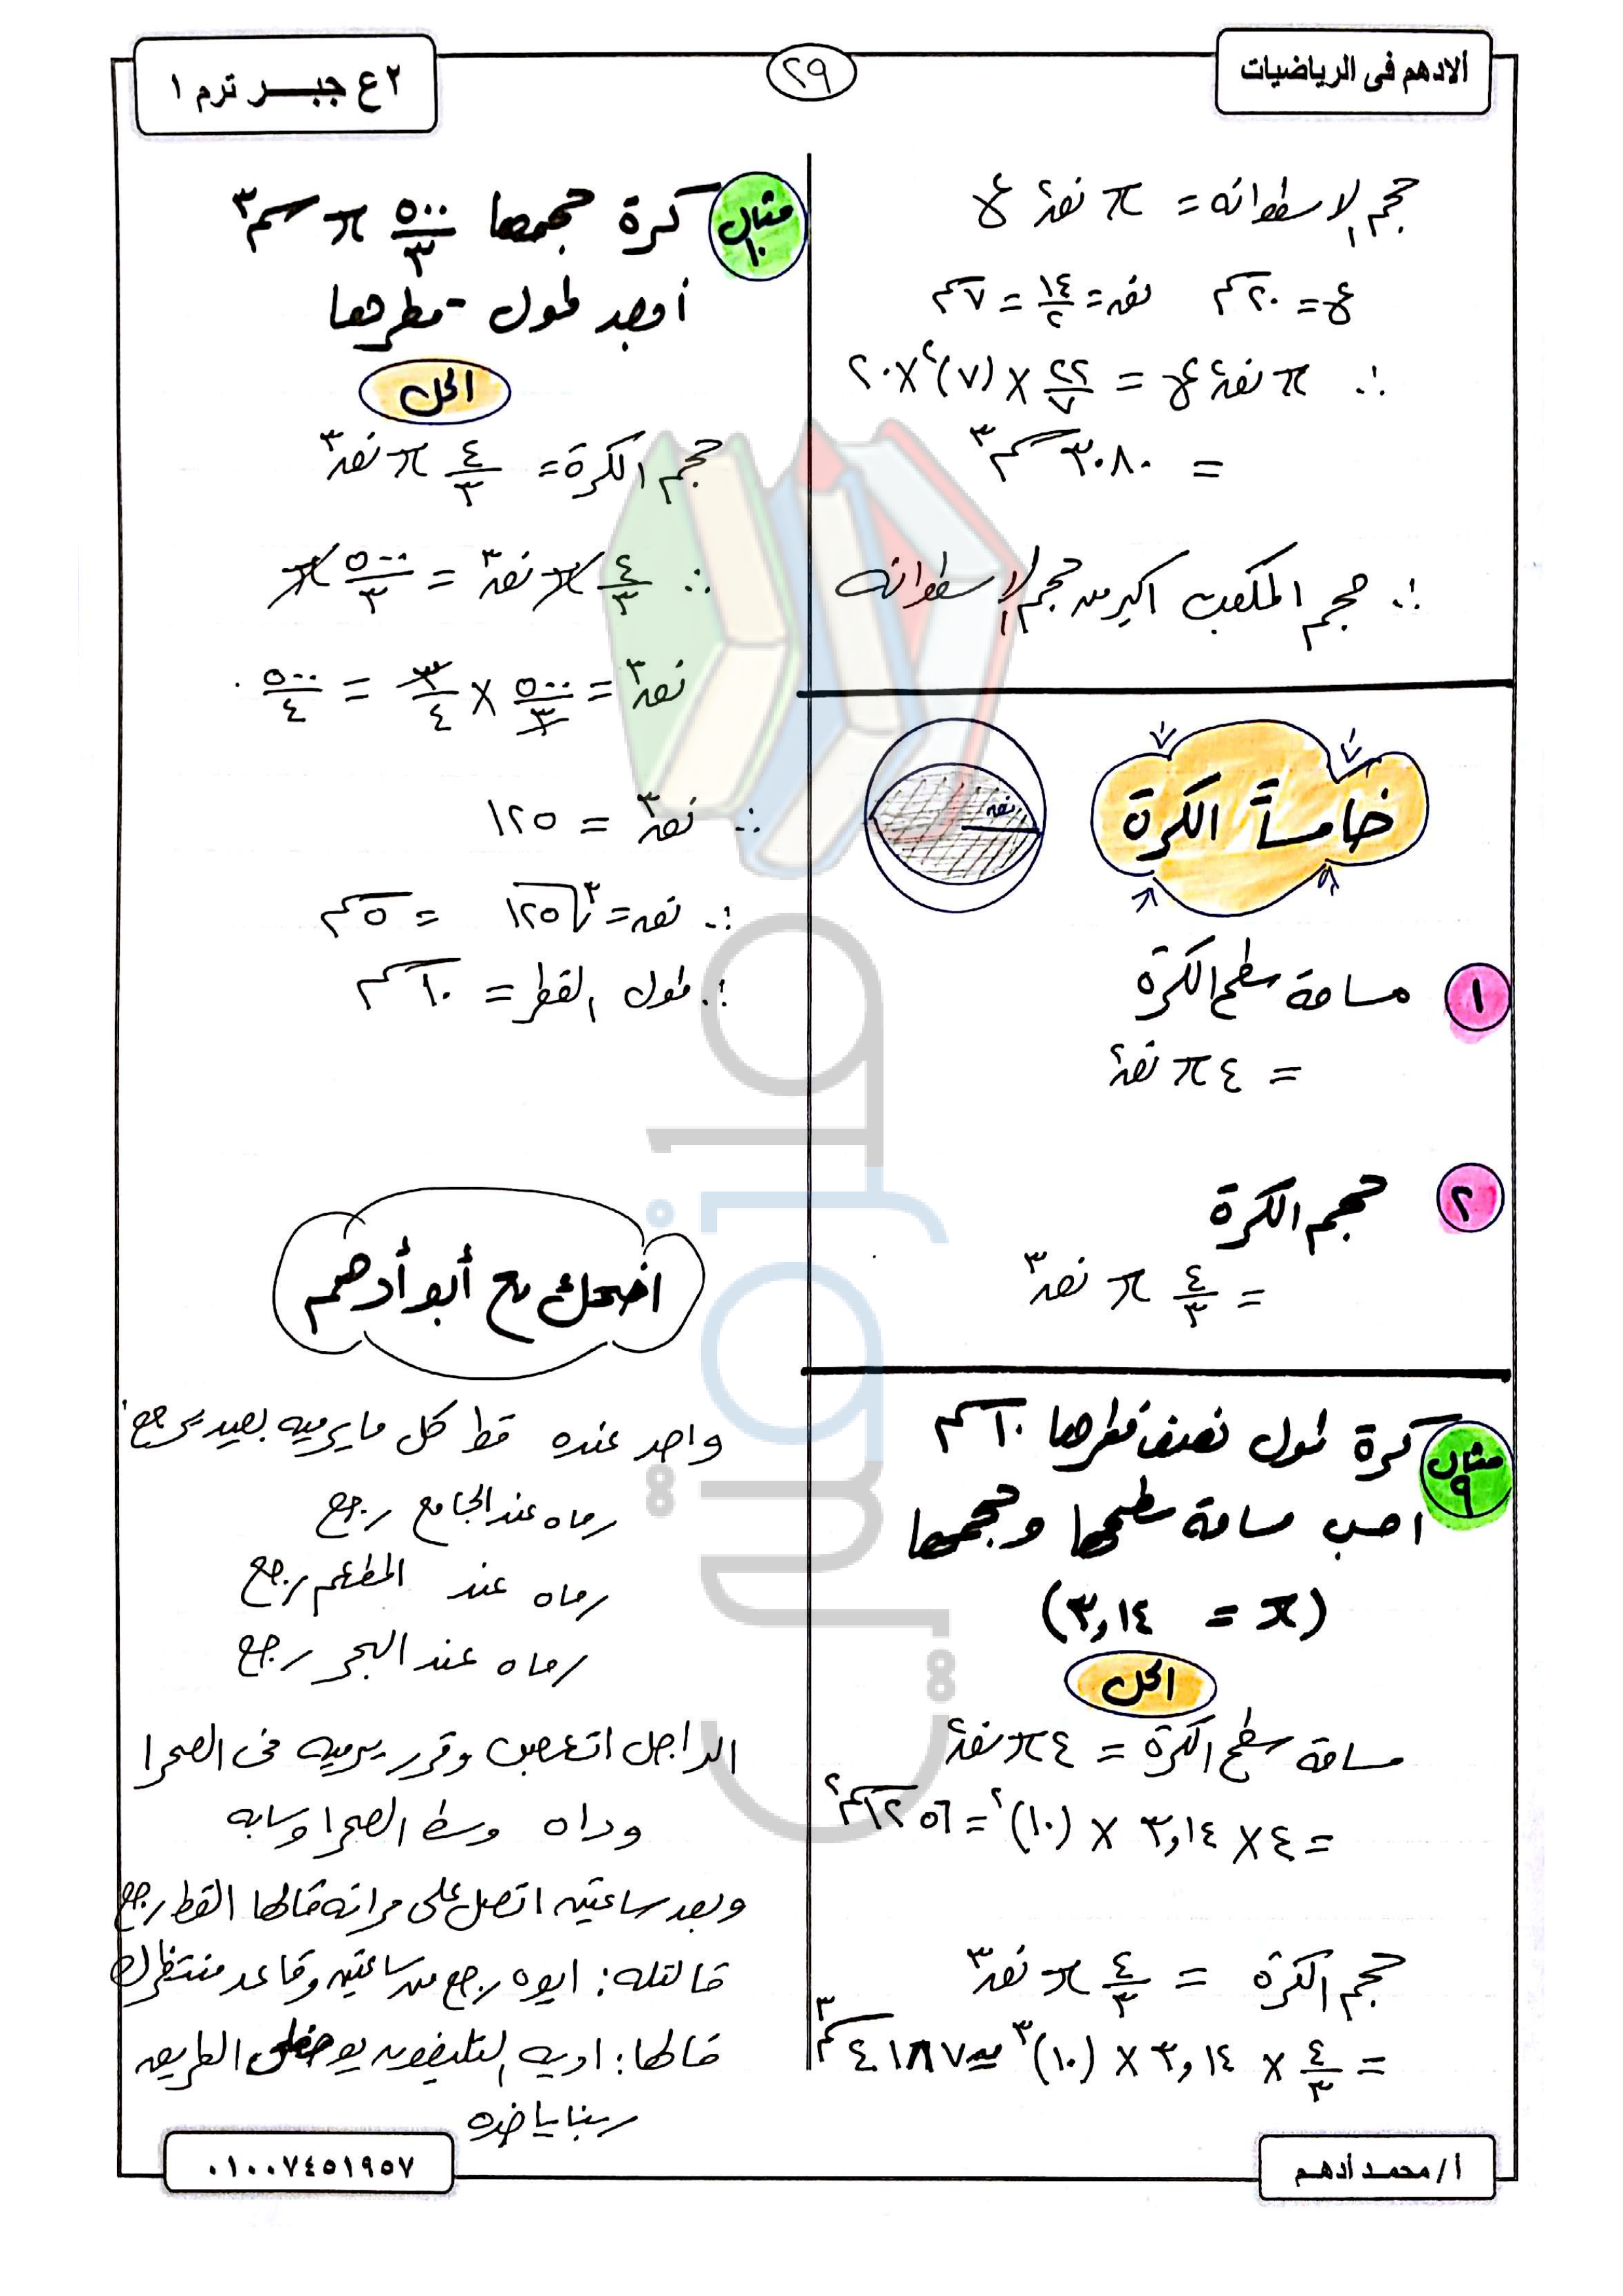 ألادهم فى الرياضيات
٢٩
٢ع جبـــر ترم ١
حجم الإسطوانه = π نق٢ ع
ع = ٢٠ سم نق = ١٤/٢ = ٧ سم
∴ π نق٢ ع = ٢٢/٧ × (٧)٢ × ٢٠
= ٣٠٨٠ سم٣
∴ حجم المكعب اكبر من حجم الإسطوانه
خامساً الكرة
نق
١ مساحة سطح الكرة
= ٤ π نق٢
٢ حجم الكرة
= ٤/٣ π نق٣
مثال ٩ كرة طول نصف قطرها ١٠ سم
احسب مساحة سطحها وحجمها
(π = ٣,١٤)
الحل
مساحة سطح الكرة = ٤ π نق٢
= ٤ × ٣,١٤ × (١٠)٢ = ١٢٥٦ سم٢
حجم الكرة = ٤/٣ π نق٣
= ٤/٣ × ٣,١٤ × (١٠)٣ ≃ ٤١٨٧ سم٣
مثال ١٠ كرة حجمها ٥٠٠/٣ π سم٣
أوجد طول قطرها
الحل
حجم الكرة = ٤/٣ π نق٣
∴ ٤/٣ π نق٣ = ٥٠٠/٣ π
نق٣ = ٥٠٠/٣ × ٣/٤ = ٥٠٠/٤
∴ نق٣ = ١٢٥
∴ نق = ∛١٢٥ = ٥ سم
∴ طول القطر = ١٠ سم
اضحك مع أبو أدهم
واحد عنده قط كل ما يرميه بعيد يرجع
رماه عند الجامع رجع
رماه عند المطعم رجع
رماه عند البحر رجع
الراجل اتعصب وقرر يرميه فى الصحرا
وداه وسط الصحرا وسابه
وبعد ساعتين اتصل على مراته قالها القط رجع
قالتله: ايوه رجع من ساعتين وقاعد منتظرك
قالها: اديه التليفون يوصفلى الطريق
ربنا ياخده
أ/ محمـد أدهـم
٠١٠٠٧٤٥١٩٥٧